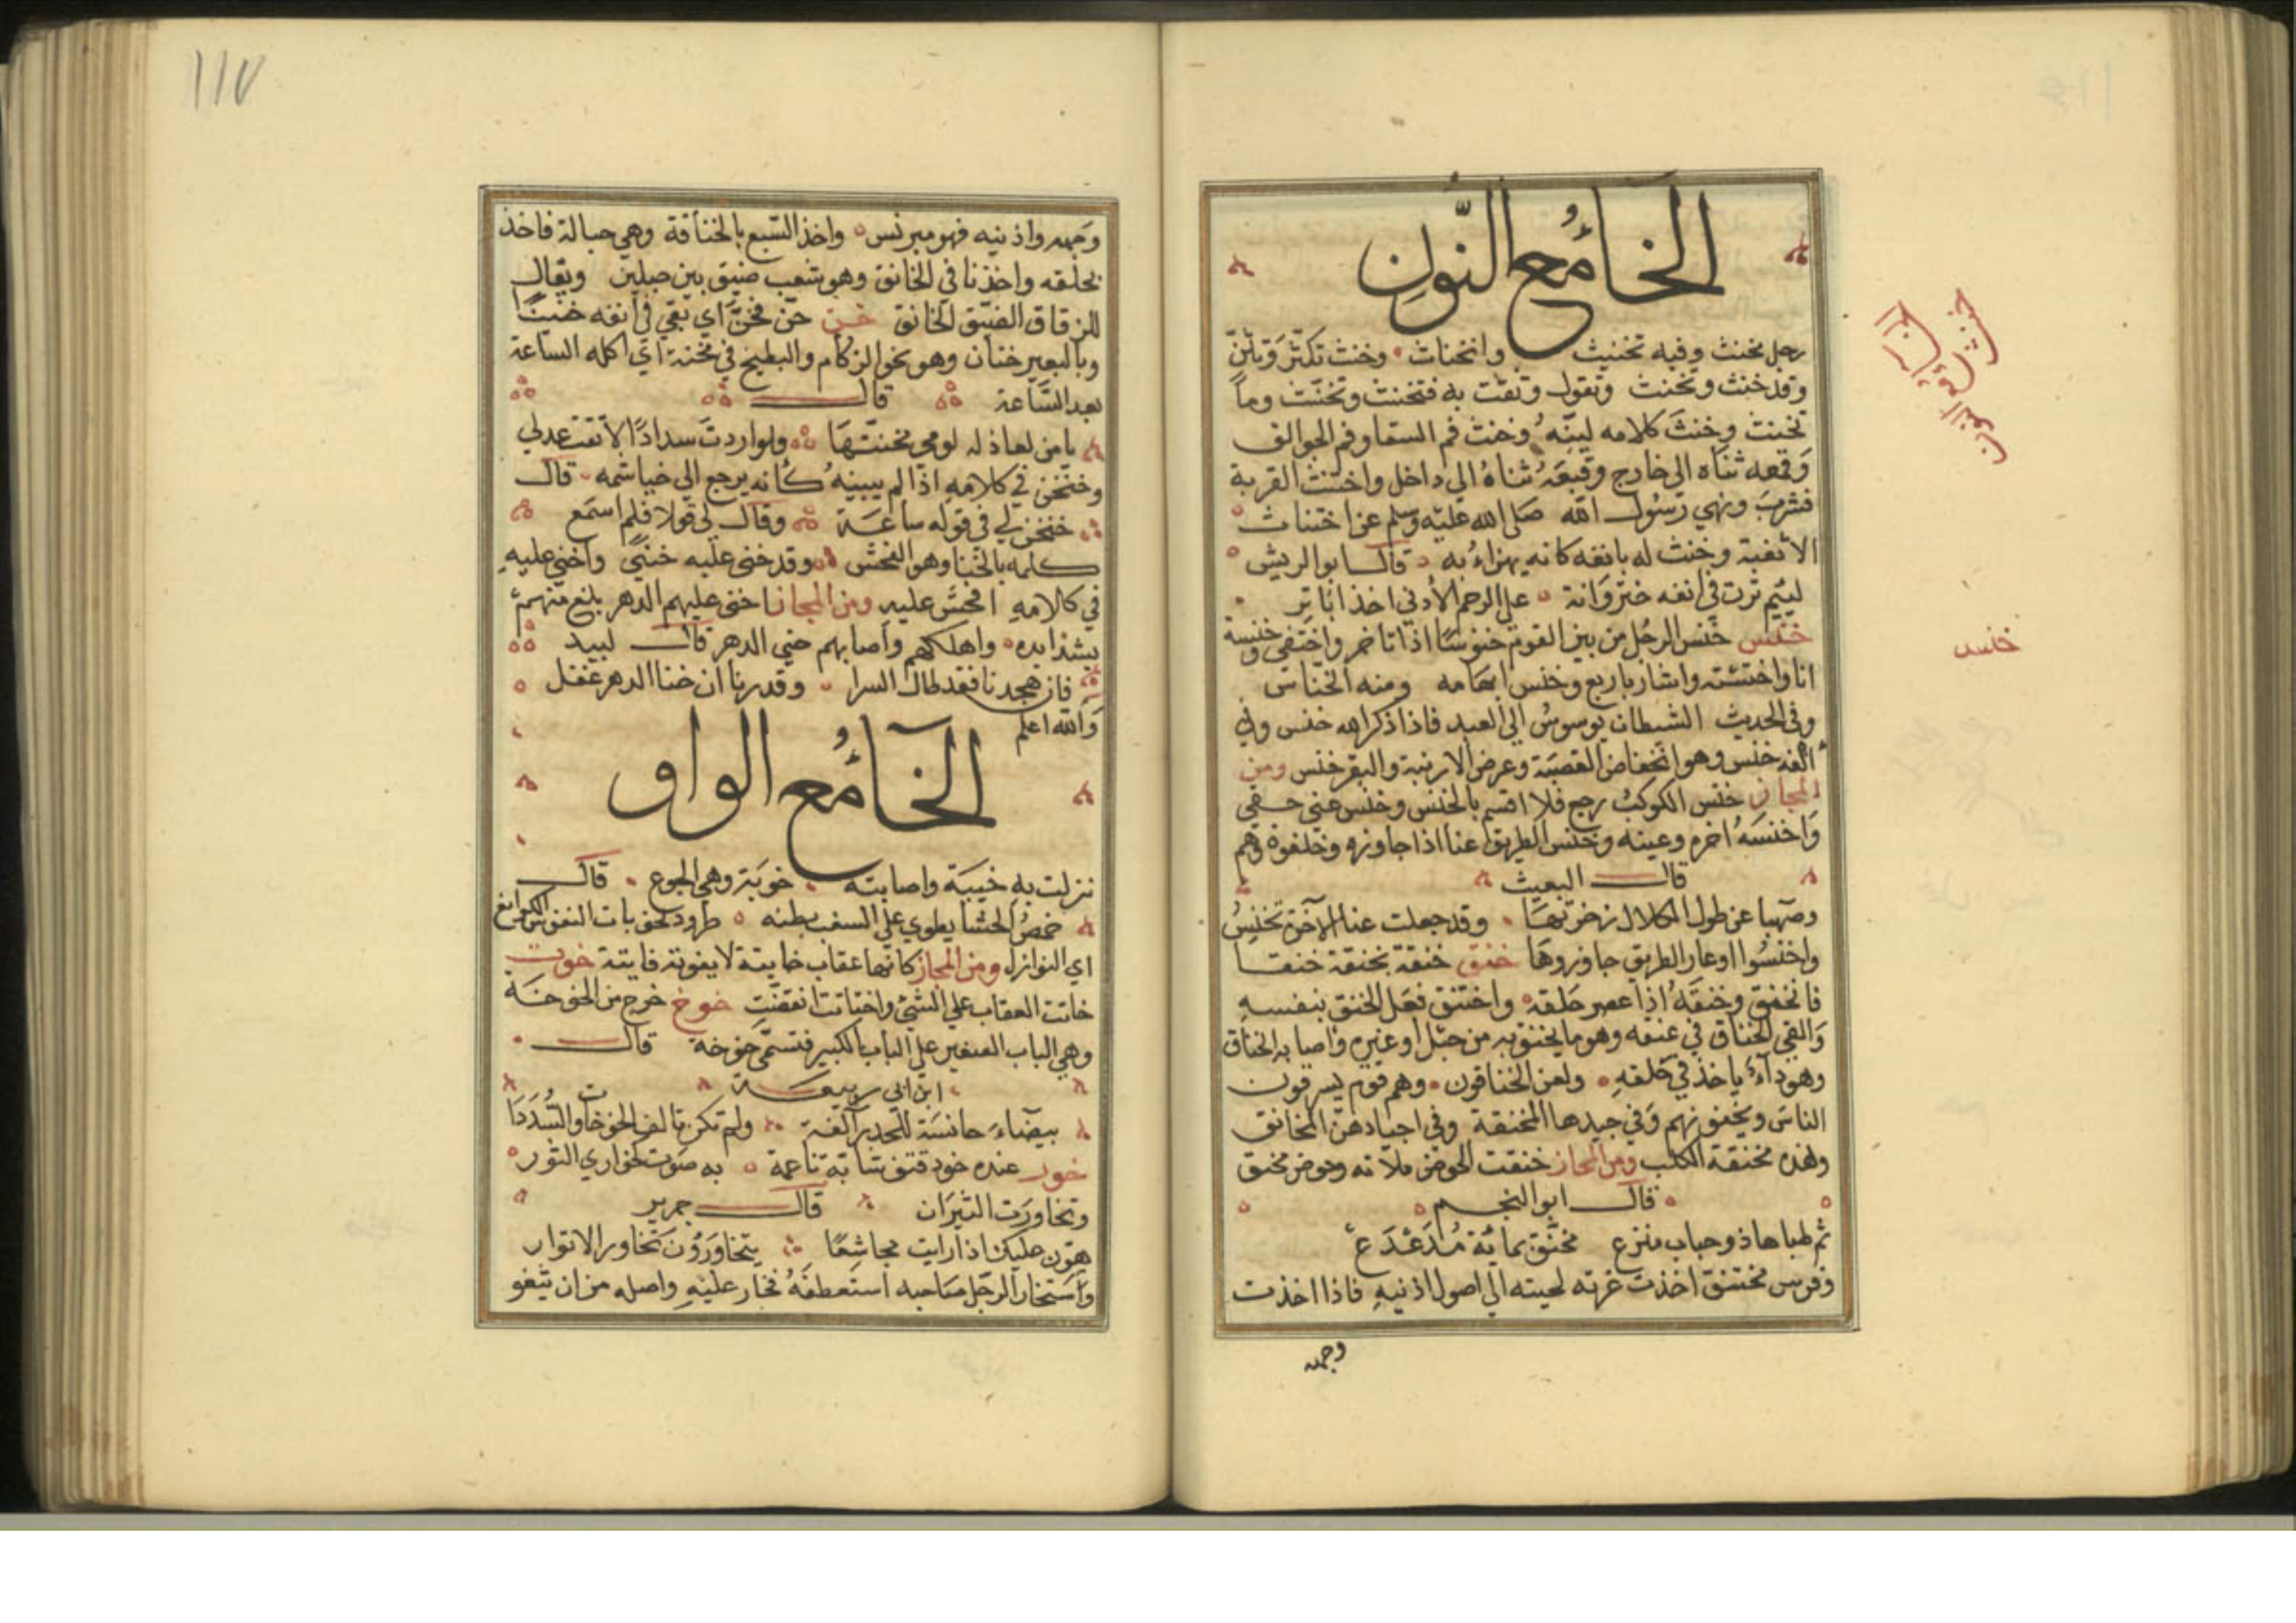 الخاء مع النون
رجل مخنث وفيه تخنيث وانخناث وخنث تكثر وتأنن
وقد خنث وتخنث وتقول وتفت به فتخنث وتخنث وما
تخنث وخنث كلامه لينه وخنث فم السقاء وفم الجوالق
وقمعه ثناه الى خارج وقبعه ثناه الي داخل واختنث القربة
فشرب ونهي رسول الله صلى الله عليه وسلم عن اختناث
الاسقية وخنث له بانفه كانه يهزاء به قال ابو الريش
لييم نرت في انفه خنزوانة علي الرحم الادني اخذ اباتر
خنس خنس الرجل من بين القوم خنوسا اذا تاخر واختفي وخنسة
انا واختنسته واشار باربع وخنس ابهامه ومنه الخناس
وفي الحديث الشيطان يوسوس الي العبد فاذا ذكر الله خنس وفي
انفه خنس وهو انخفاض القصبة وعرض الارنبة والبقر خنس ومن
المجاز خنس الكوكب رجع فلا اقسم بالخنس وخنس عني حقي
واخنسه اخره وغيبه وخنس الطريق عنا اذا جاوزه وخلفوه وهم
قال البعيث
وصهبا عن طول الكلال زخرتها وقد جعلت عنا الآخرة تخنس
واخنسوا اوعار الطريق جاوزوها خنق خنقه يخنقه خنقا
فانخنق وخنقه اذا عصر حلقه واختنق فعل الخنق بنفسه
والقي الخناق في عنقه وهو ما يخنق به من حبل او غيره واصابه الخناق
وهو داء ياخذ في حلقه ولعن الخناقون وهم قوم يسرقون
الناس ويخنقونهم وفي جيدها المخنقة وفي اجيادهن المخانق
وهذه مخنقة الكلب ومن المجاز خنقت الحوض ملاته وحوض مخنق
قال ابو النجم
ثم طباها ذو حباب منزع مخنق بمائة مدعدع
وفرس مختنق اخذت غرته لحيته الي اصول اذنيه فاذا اخذت
وجهه
خنس
١١٧
وجهه واذنيه فهو مبرنس واخذ السبع بالخناقة وهي حبالة فاخذ
بحلقه واخذنا في الخانق وهو شعب ضيق بين جبلين ويقال
للزقاق الضيق الخانق خنن حن فخن اي بقي في انفه خنينا
وبالبعير خنان وهو نحو الزكام والبطيخ في مخنة اي اكله الساعة
بعد الساعة قال
يا من لعاذله لومي مخنتها ولو اردت سدادا لاتقت عدلي
وخنخن في كلامه اذا لم يبينه كأنه يرجع الي خياشمه قال
خنخن لي في قوله ساعة وقال لي قولا فلم اسمع
كلمه بالخنا وهو الفحش وقد خني عليه خنى واخني عليه
في كلامه افحش عليه ومن المجاز اخنى عليهم الدهر بلغ منهم
بشدايده واهلكهم واصابهم خني الدهر قال لبيد
قال هجدنا فقد طال السرا وقدرنا ان خنا الدهر غفل
والله اعلم
الخاء مع الواو
نزلت به خيبة واصابته خوبة وهي الجوع قال
خمص الحشا يطوي علي السغب بطنه طرود لخوبات النفوس الكوانع
اي النوازل ومن المجاز كانها عقاب خايتة لا يفوته فايتة خوت
خاتت العقاب علي الشئ واختاتت انقضت خوخ خرج من الخوخة
وهي الباب الصغير علي الباب الكبير فتسمى خوخة قال
ابن ابي ربيعة
بيضاء حانسة للخدر آلفة ولم تكن تالف الخوخات والسددا
خور عنده خود فتق شابة ناعمة به صوت كخواري الثور
وتخاورت الثيران قال جرير
هون عليك اذا رايت مجاشعا يتخاورون تخاور الاثوار
واستخار الرجل صاحبه استعطفه فخار عليه واصله من ان يثغو